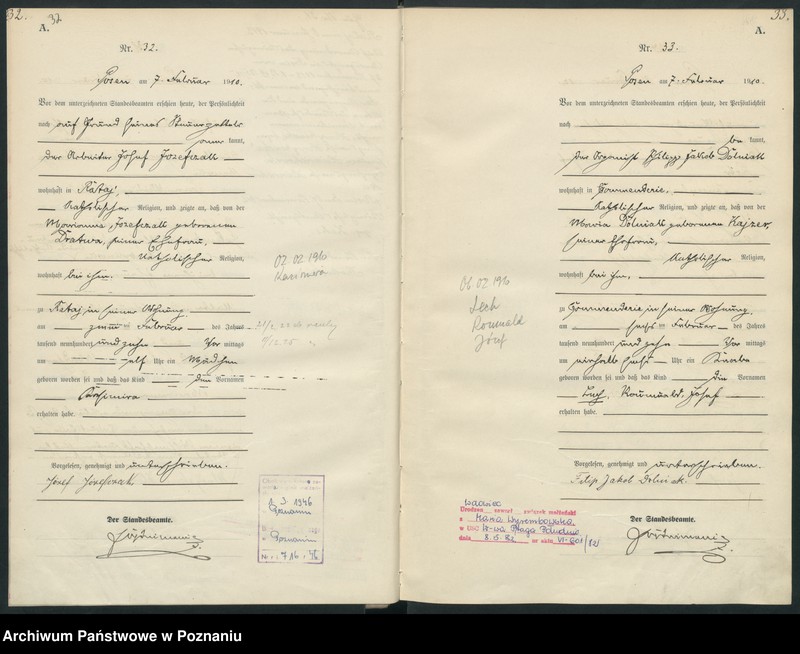 32.
32
A.
Nr. 32.
Posen am 7. Februar 1910.
Vor dem unterzeichneten Standesbeamten erschien heute, der Persönlichkeit
nach auf Grund seines Steuerzettels
kannt,
der Arbeiter Josef Jozefczak
wohnhaft in Rataj,
katholischer Religion, und zeigte an, daß von der
Marianna Jozefczak geborenen
Dratwa, seiner Ehefrau,
katholischer Religion,
wohnhaft bei ihm
zu Rataj in seiner Wohnung
am Februar des Jahres
tausend neunhundert und zehn Vor mittags
um elf Uhr ein Mädchen
geboren worden sei und daß das Kind den Vornamen
Kasimira
erhalten habe.
Vorgelesen, genehmigt und unterschrieben.
Józef Józefczak
Der Standesbeamte.
02 02 1910
Kazimiera
1. 3 1946
Poznaniu
Poznaniu
Nr. 716/46
33.
A.
Nr. 33.
Posen am 7. Februar 1910.
Vor dem unterzeichneten Standesbeamten erschien heute, der Persönlichkeit
nach
be kannt,
der Organist Philipp Jakob Dolniak
wohnhaft in Commenderie,
katholischer Religion, und zeigte an, daß von der
Maria Dolniak geborenen Kajzer,
seiner Ehefrau,
katholischer Religion,
wohnhaft bei ihm,
zu Commenderie in seiner Wohnung
am sechs Februar des Jahres
tausend neunhundert und zehn Vor mittags
um Uhr ein Knabe
geboren worden sei und daß das Kind die Vornamen
Lech, Romuald, Josef
erhalten habe.
Vorgelesen, genehmigt und unterschrieben.
Filip Jakob Dolniak
Der Standesbeamte.
06 02 1910
Lech
Romuald
Józef
wdowiec
Urodzon zawarł związek małżeński
z Maria
w USC W-wa Praga Południe
dnia 8.5.82 nr aktu VI-601/82
Archiwum Państwowe w Poznaniu